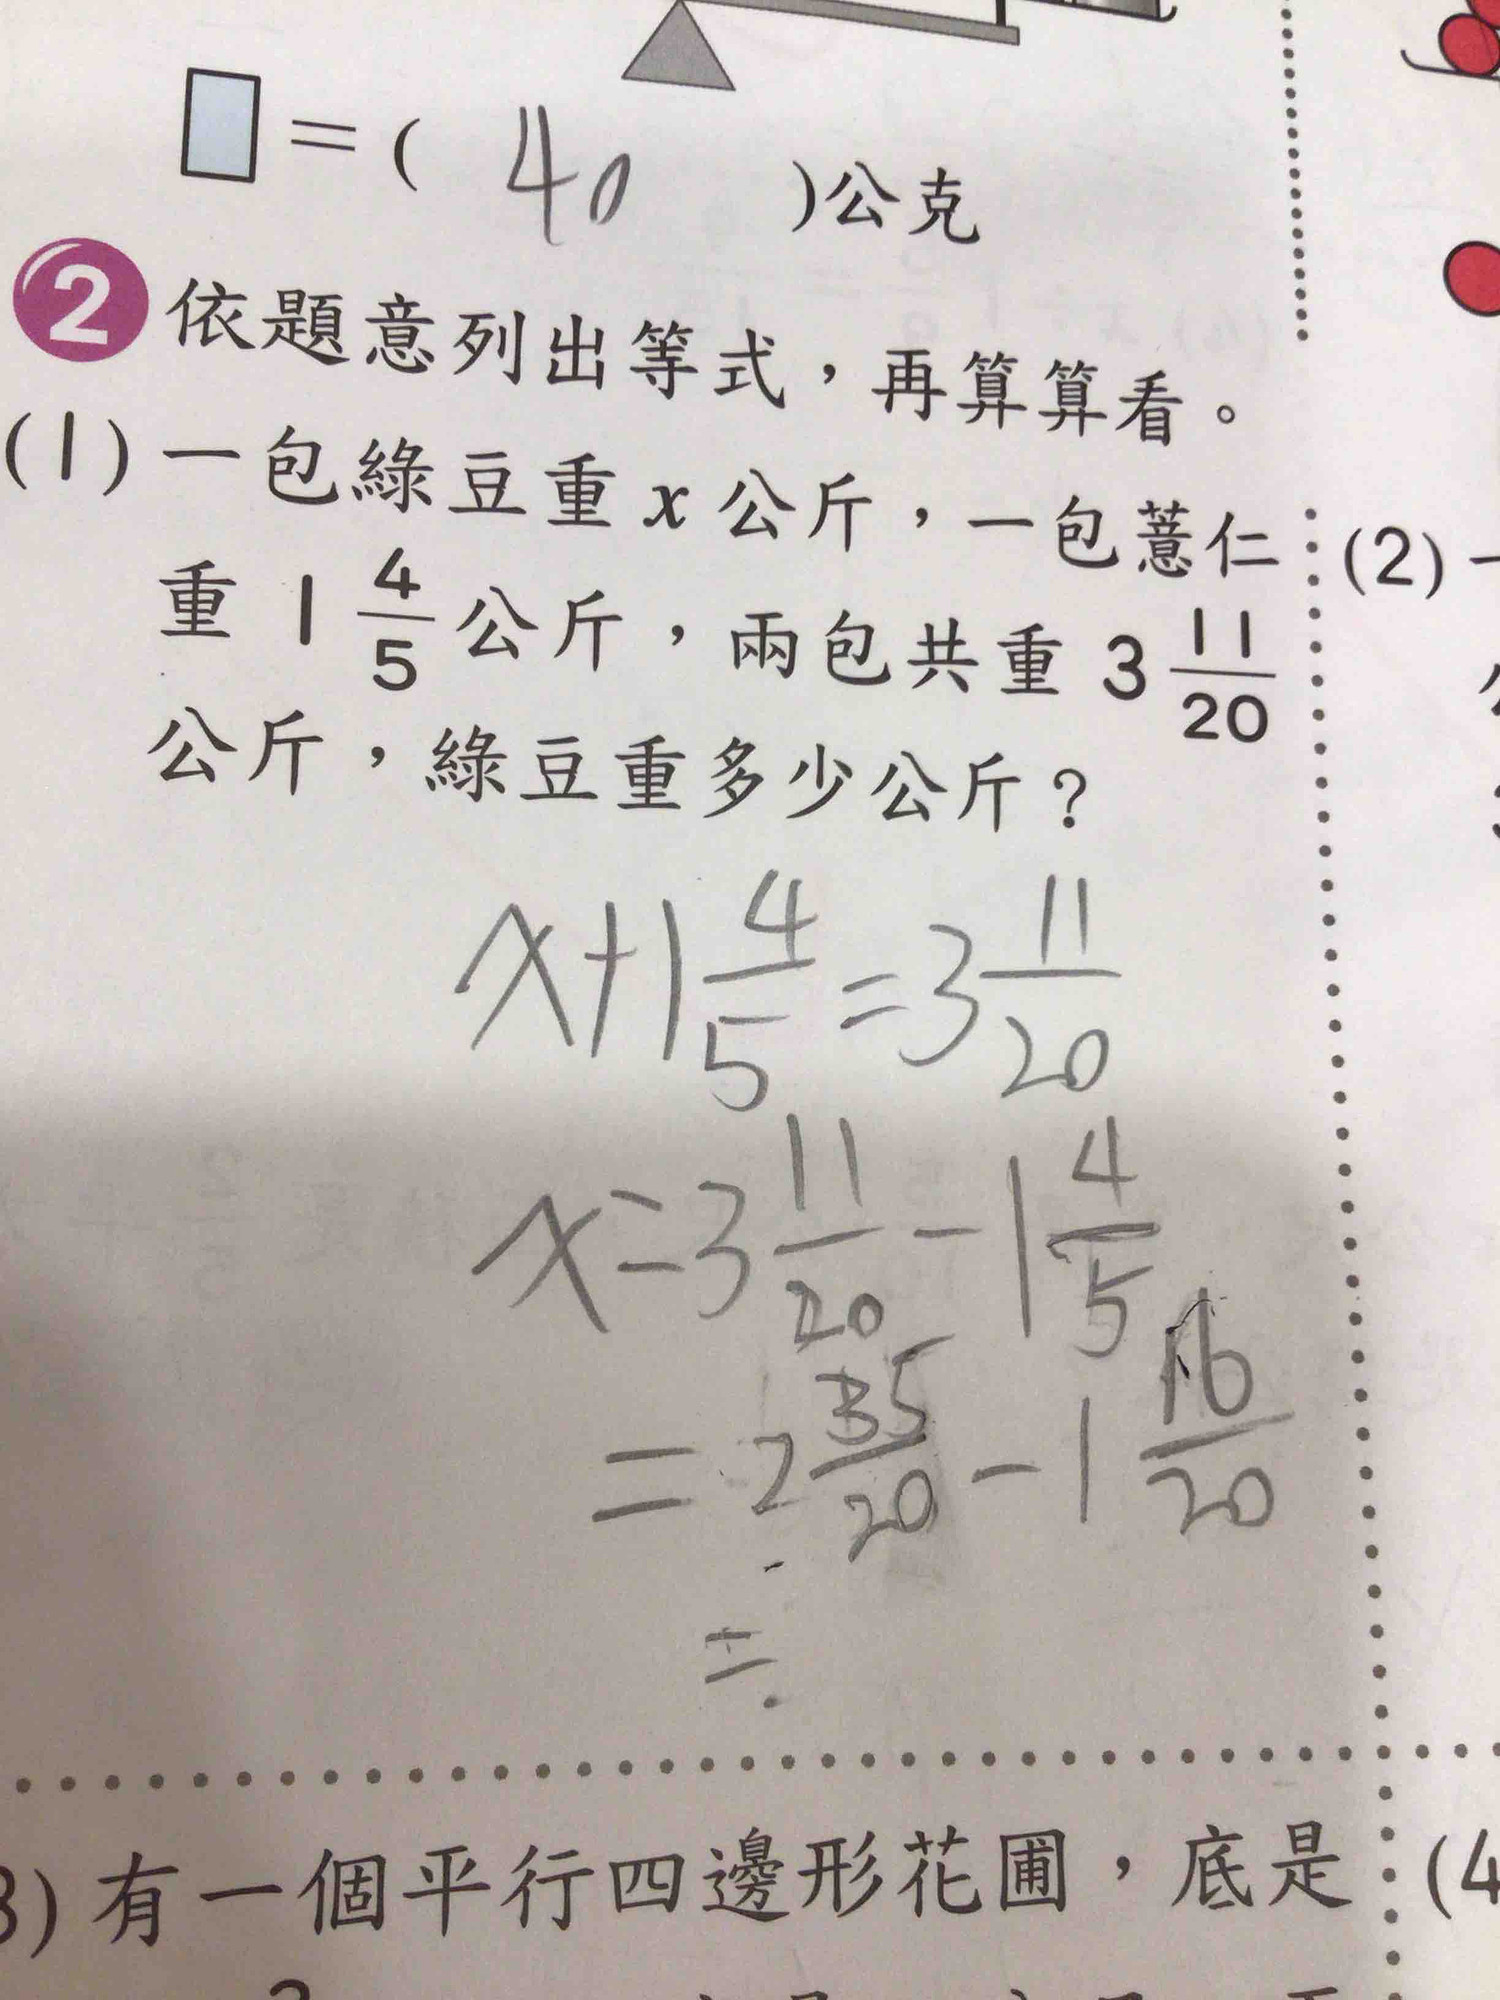 □=( 40 )公克
2 依題意列出等式,再算算看。
(1) 一包綠豆重 x 公斤,一包薏仁
重 1 4/5 公斤,兩包共重 3 11/20
公斤,綠豆重多少公斤?
x+1 4/5=3 11/20
x=3 11/20-1 4/5
=2 35/20-1 16/20
=
(2) 一
3) 有一個平行四邊形花圃,底是
(4